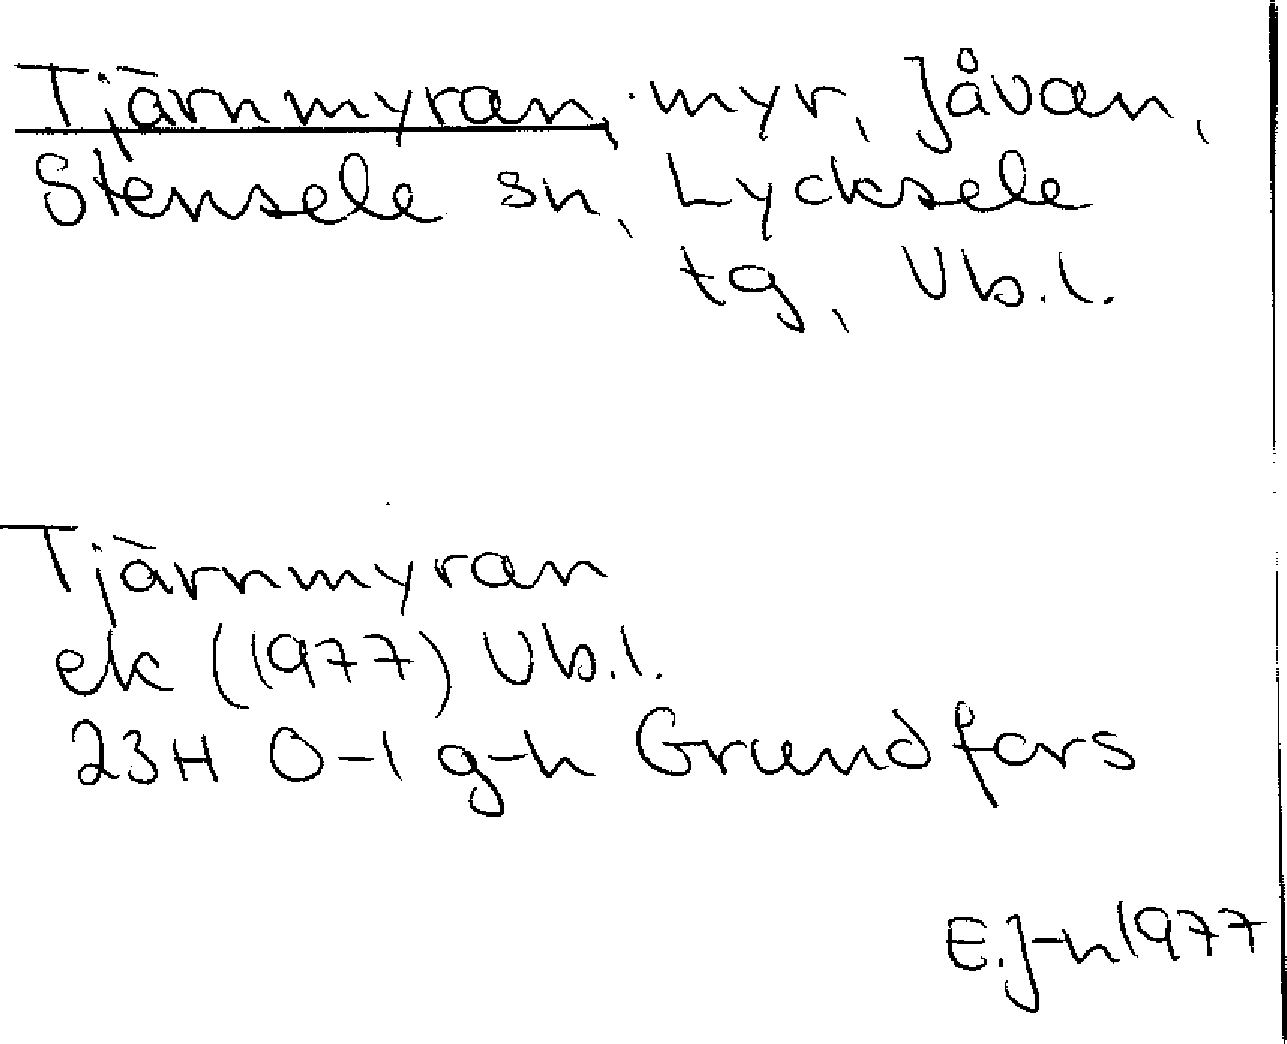 Tjärnmyran, myr, Jåvan,
Stensele sn, Lycksele
tg, Vb.l.
Tjärnmyran
ek (1977) Vb.l.
23H 0-1 g-h Grundfors
E.J-n 1977